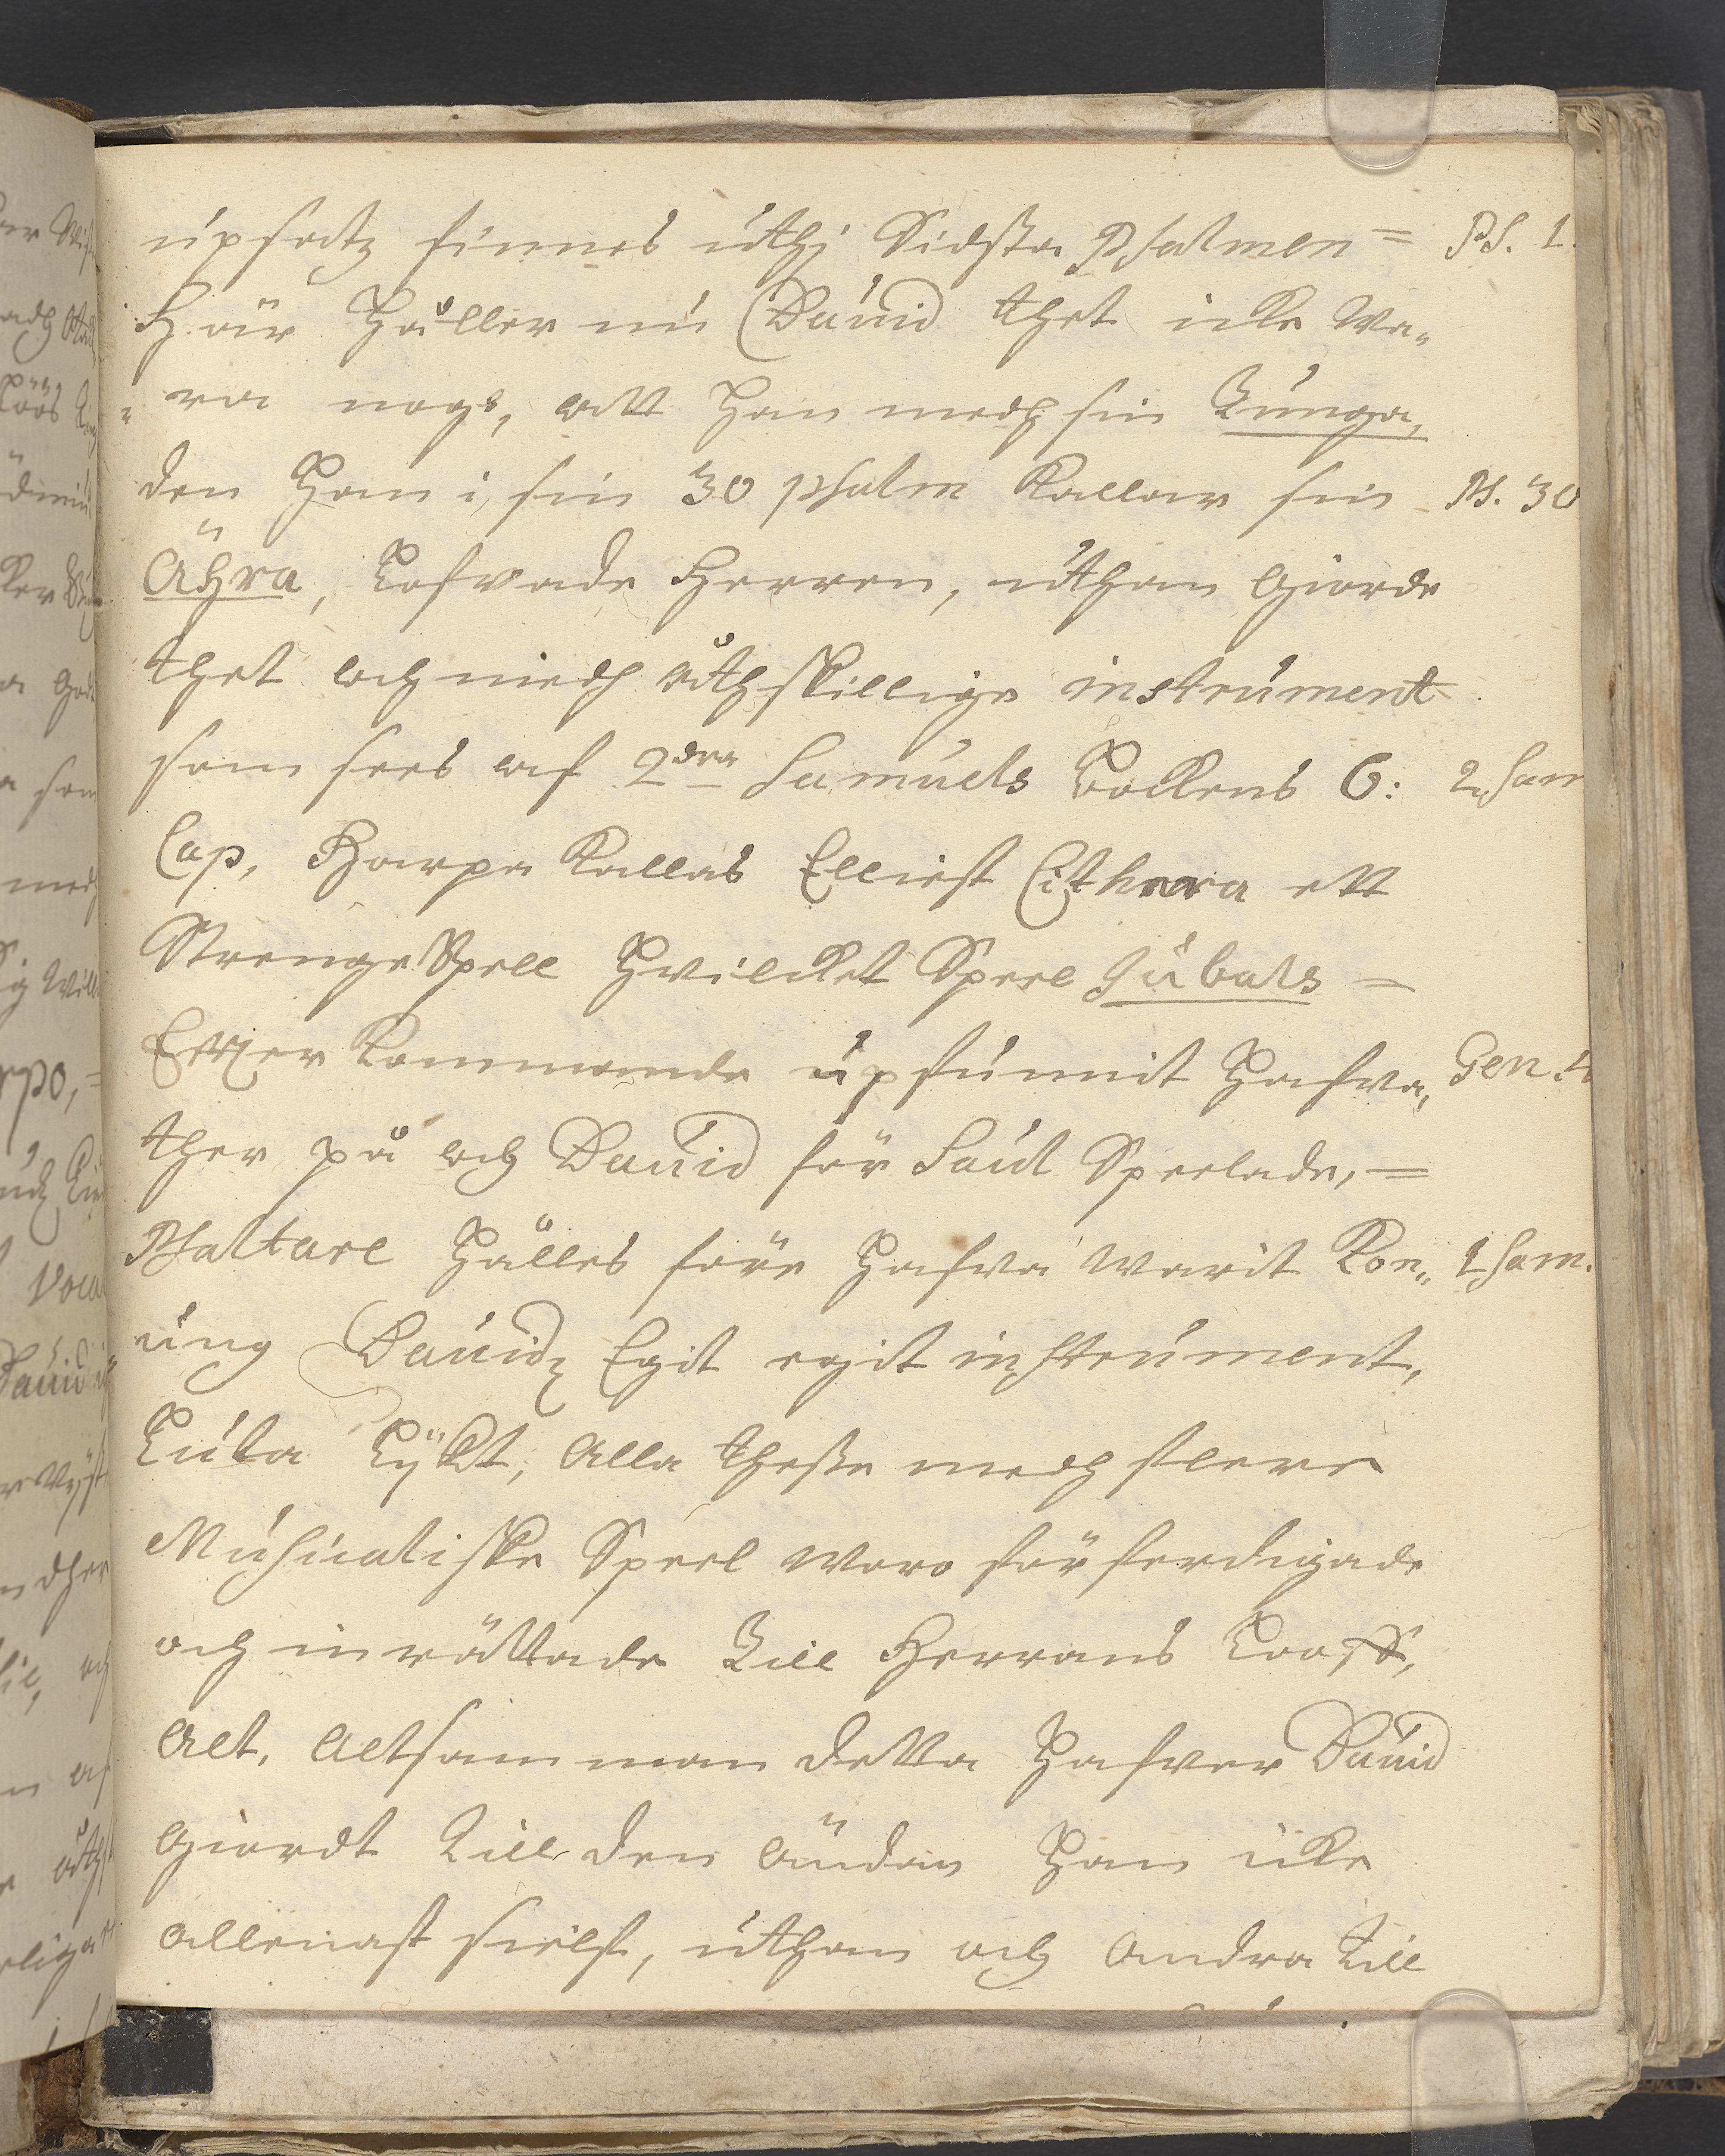 upsatz finnes uthj Sidsta Psalmen = Ps. 1
Här håller nu David thet icke wa„
„ra nogs, att han medh sin Tunga,
den han i sin 30 psalm kallar sin Ps. 30
Ähra, Lofvade Herren, uthan giorde
thet och medh åthskillige instrument
som sees af 2dra Samuels Bockens 6: 2 Sam
Cap, Harpa kallas Elliest Cithara ett
StrengeSpell hvilcket Speel Jubals =
Effter kommande upfunnit hafva, Gen. 4
ther på och David för Saul Speelade, =
Psaltare hålles före hafva warit Kon„ 1 Sam.
ung Davidz Egit egit instrument,
Luta Lÿkt, Alla thesse medh flere
Musicaliske Speel woro förferdigade
och inrättade Till Herrans Looff,
Alt, Altsamman detta hafver David
giordt Till den ändan han icke
allenast sielf, uthan och andra Till